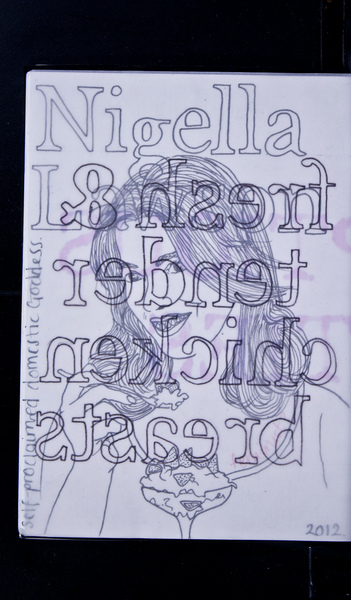 Nigella
L
fresh &
tender
chicken
breasts
self-proclaimed domestic Goddess.
2012.